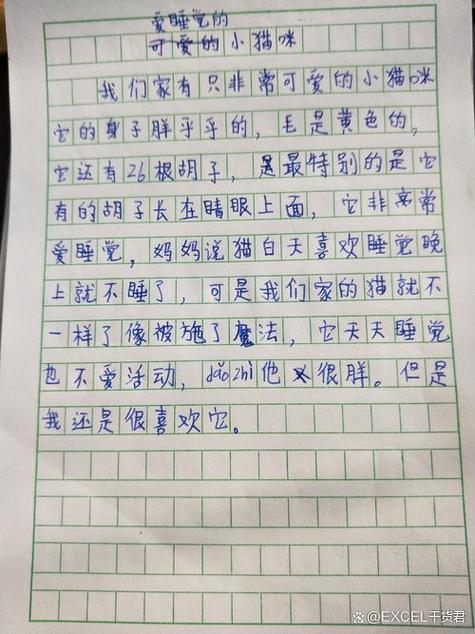 爱睡觉的
可爱的小猫咪
我们家有只非常可爱的小猫咪
它的身子胖乎乎的，毛是黄色的，
它还有26根胡子，最特别的是它
有的胡子长在睛眼上面，它非常
爱睡觉，妈妈说猫白天喜欢睡觉晚
上就不睡了，可是我们家的猫就不
一样了像被施了魔法，它天天睡觉
也不爱活动，dǎo zhì他很胖。但是
我还是很喜欢它。
@EXCEL干货君